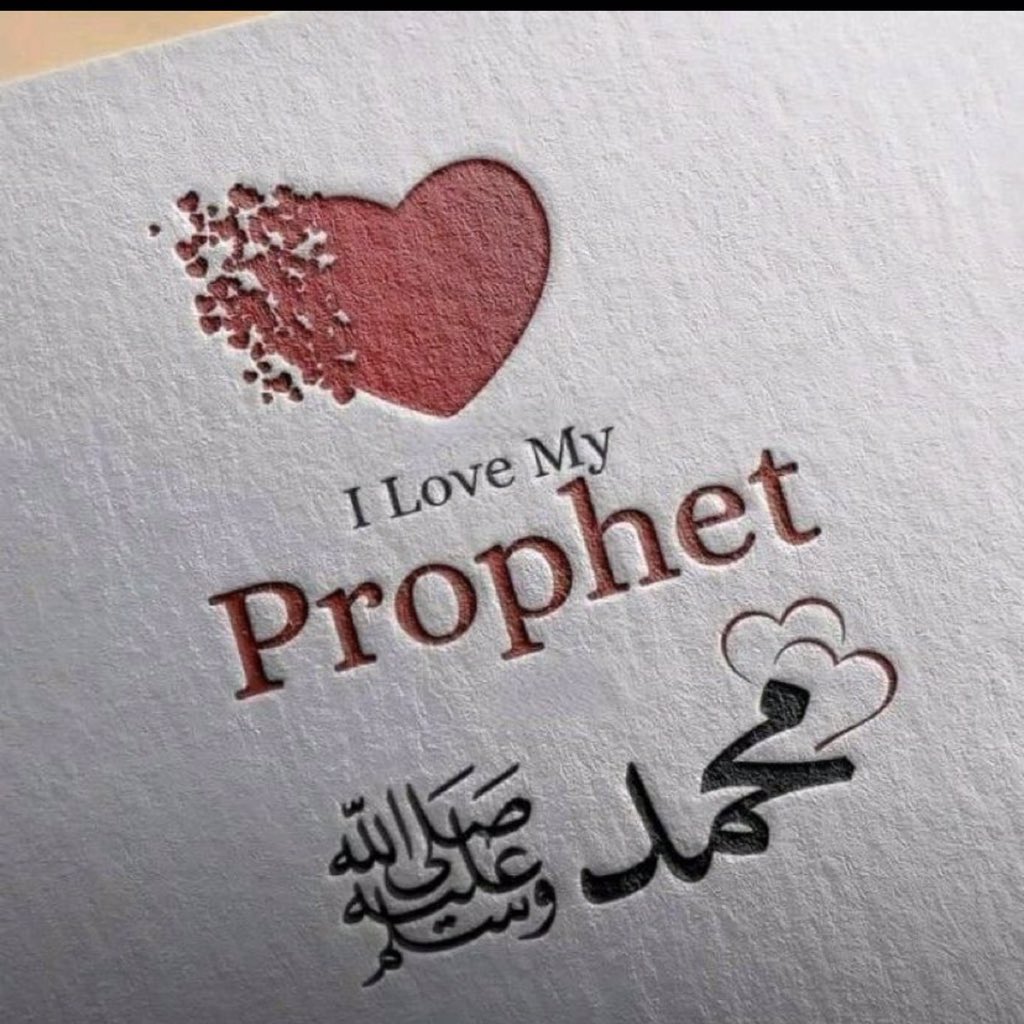 I Love My
Prophet
محمد
صلى الله
عليه
وسلم